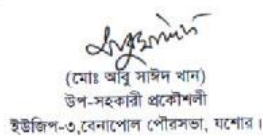 (মোঃ আবু সাঈদ খান)
উপ-সহকারী প্রকৌশলী
ইউজিপ-৩,বেনাপোল পৌরসভা, যশোর।